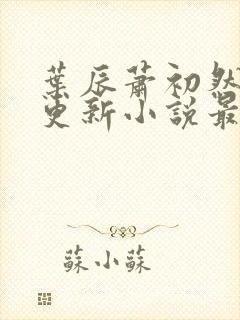 葉辰蕭初然
更新小說最
蘇小蘇